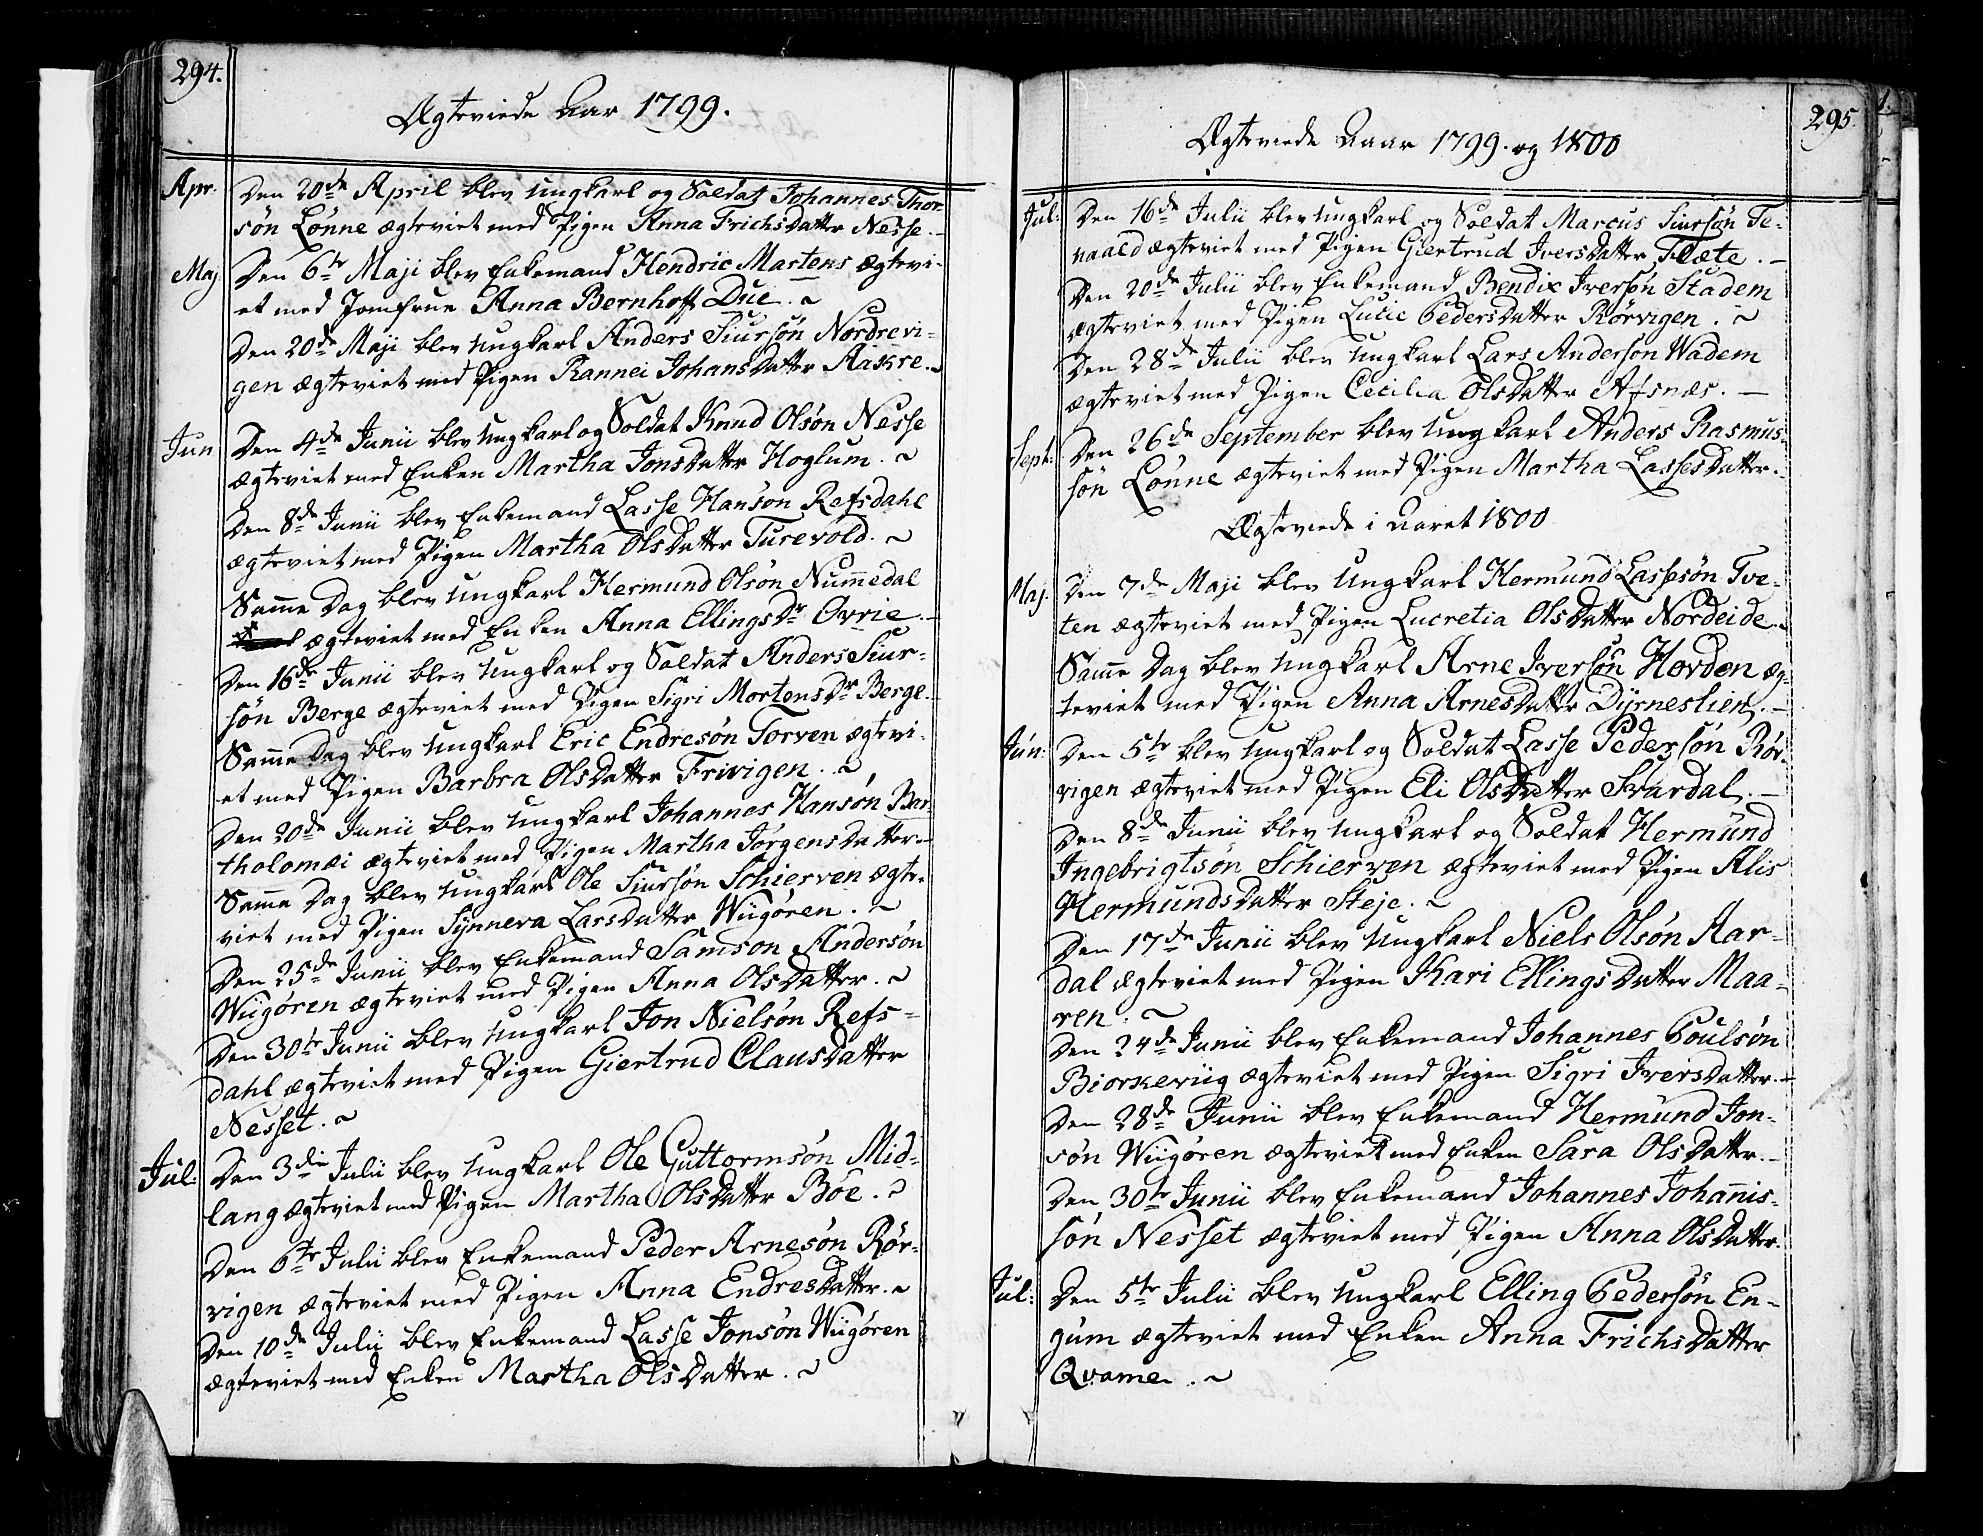 294.
Ægteviede Aar 1799.
Apr. Den 20de April blev Ungkarl og Soldat Johannes Thor-
søn Lønne ægteviet med Pigen Anna FrichsDatter Nesse.
Maj Den 6te Maji blev Enkemand Hendric Martens ægtevi-
et med Jomfrue Anna Bernhoff Due.
Den 20de Maji blev Ungkarl Anders Siursøn Nordrevi-
gen ægteviet med Pigen Rannei JohansDatter Raskre.
Jun Den 4de Junii blev Ungkarl og Soldat Knud Olsøn Nesse
ægteviet med Enken Martha JonsDatter Hoglum.
Den 8de Junii blev Enkemand Lasse Hansøn Refsdahl
ægteviet med Pigen Martha OlsDatter Turevold.
Samme Dag blev Ungkarl Hermund Olsøn Nummedal
ægteviet med Enken Anna EllingsDr Øvrie.
Den 16de Junii blev Ungkarl og Soldat Anders Siur-
søn Berge ægteviet med Pigen Sigri MortensDr Berge.
Samme Dag blev Ungkarl Eric Endresøn Torven ægtevi-
et med Pigen Barbra OlsDatter Frivigen.
Den 20de Junii blev Ungkarl Johannes Hansøn Bar-
tholomæi ægteviet med Pigen Martha JørgensDatter.
Samme Dag blev Ungkarl Ole Siursøn Schierven ægte-
viet med Pigen Synneva LarsDatter Wiigøren.
Den 25de Junii blev Enkemand Samson Andersøn
Wiigøren ægteviet med Pigen Anna OlsDatter.
Den 30te Junii blev Ungkarl Jon Nielsøn Refs-
dahl ægteviet med Pigen Giertrud ClausDatter
Nesset.
Jul: Den 3die Julii blev Ungkarl Ole Guttormsøn Mid-
lang ægteviet med Pigen Martha OlsDatter Bøe.
Den 6te Julii blev Enkemand Peder Arnesøn Rør-
vigen ægteviet med Pigen Anna EndresDatter.
Den 10de Julii blev Enkemand Lasse Jonsøn Wiigøren
ægteviet med Enken Martha OlsDatter.
295.
Ægteviede Aaar 1799. og 1800
Jul: Den 16de Julii blev Ungkarl og Soldat Marcus Siursøn Te-
naald ægteviet med Pigen Giertrud IversDatter Flæte.
Den 20de Julii blev Enkemand Bendix Iversøn Stadem
ægteviet med Pigen Lucie PedersDatter Rørvigen.
Den 28de Julii blev Ungkarl Lars Anderson Wadem
ægteviet med Pigen Cecilia OlsDatter Afsnæs.
Sept: Den 26de September blev Ungkarl Anders Rasmus-
søn Lønne ægteviet med Pigen Martha LassesDatter.
Ægteviede i Aaret 1800
Maj. Den 7de Maji blev Ungkarl Hermund Lassesøn Tve-
ten ægteviet med Pigen Lucretia OlsDatter Nordeide.
Samme Dag blev Ungkarl Arne Iversøn Hovden æg-
teviet med Pigen Anna ArnesDatter Dyrneslien.
Jun: Den 5te blev Ungkarl og Soldat Lasse Pedersøn Rør-
vigen ægteviet med Pigen Eli OlsDatter Svardal.
Den 8de Junii blev Ungkarl og Soldat Hermund
Ingebrigtsøn Schierven ægteviet med Pigen Alis
HermundsDatter Steje.
Den 17de Junii blev Ungkarl Niels Olsøn Aar-
dal ægteviet med Pigen Kari EllingsDatter Maa-
ren.
Den 24de Junii blev Enkemand Johannes Poulsøn
Biorkeviig ægteviet med Pigen Sigri IversDatter.
Den 28de Junii blev Enkemand Hermund Jon-
søn Wiigøren ægteviet med Enken Sara OlsDatter.
Den 30te Junii blev Enkemand Johannes Johannis-
søn Nesset ægteviet med Pigen Anna OlsDatter.
Jul: Den 5te Julii blev Ungkarl Elling Pedersøn En-
gum ægteviet med Enken Anna FrichsDatter
Qvame.